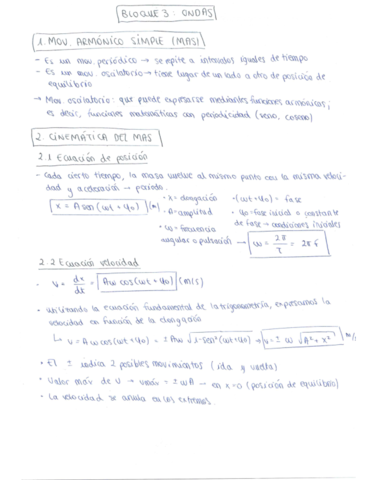 BLOQUE 3: ONDAS
1. MOV. ARMÓNICO SIMPLE (MAS)
- Es un mov. periódico → se repite a intervalos iguales de tiempo
- Es un mov. oscilatorio → tiene lugar de un lado a otro de posición de
equilibrio
→ Mov. oscilatorio: que puede expresarse mediantes funciones armónicas,
es decir, funciones matemáticas con periodicidad (seno, coseno)
2. CINEMÁTICA DEL MAS
2.1 Ecuación de posición
- Cada cierto tiempo, la masa vuelve al mismo punto con la misma veloci-
dad y aceleración → período.
x = A sen (ωt + φ0) (m)
· x = elongación
· A = amplitud
· ω = frecuencia
angular o pulsación
- (ωt + φ0) = fase
· φ0 = fase inicial o constante
de fase → condiciones iniciales
ω = 2π / T = 2π f
2.2 Ecuación velocidad
· v = dx / dt = Aω cos (ωt + φ0) (m/s)
· Utilizando la ecuación fundamental de la trigonometría, expresamos la
velocidad en función de la elongación
↳ v = A ω cos (ωt + φ0) = ± Aω √1 - sen² (ωt + φ0) → v = ± ω √A² - x² m/s
· El ± indica 2 posibles movimientos (ida y vuelta)
· Valor máx de v → vmáx = ± ωA — en x = 0 (posición de equilibrio)
· La velocidad se anula en los extremos.